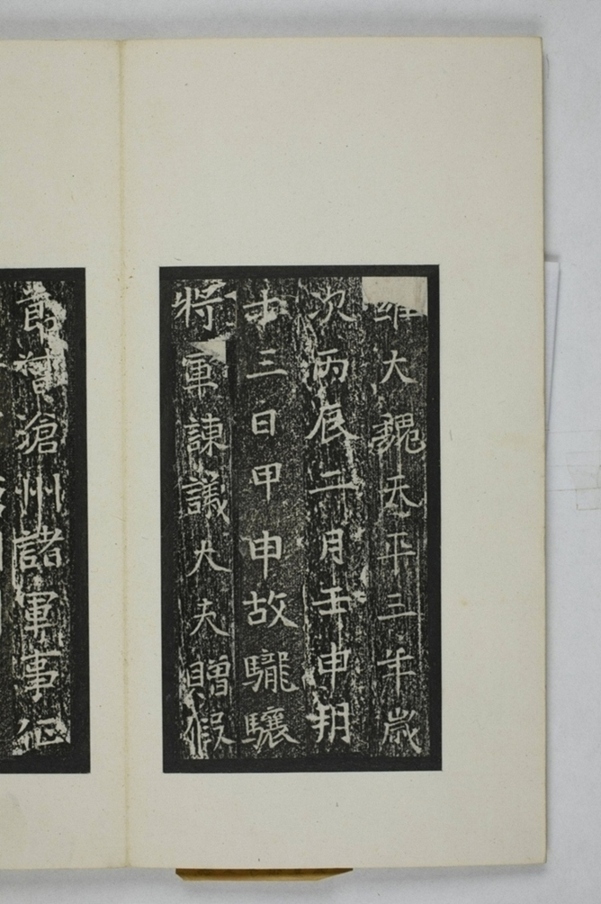 維大魏天平三年歲
次丙辰二月壬申朔
十三日甲申故䮾驤
將軍諫議大夫贈假
節督滄州諸軍事征